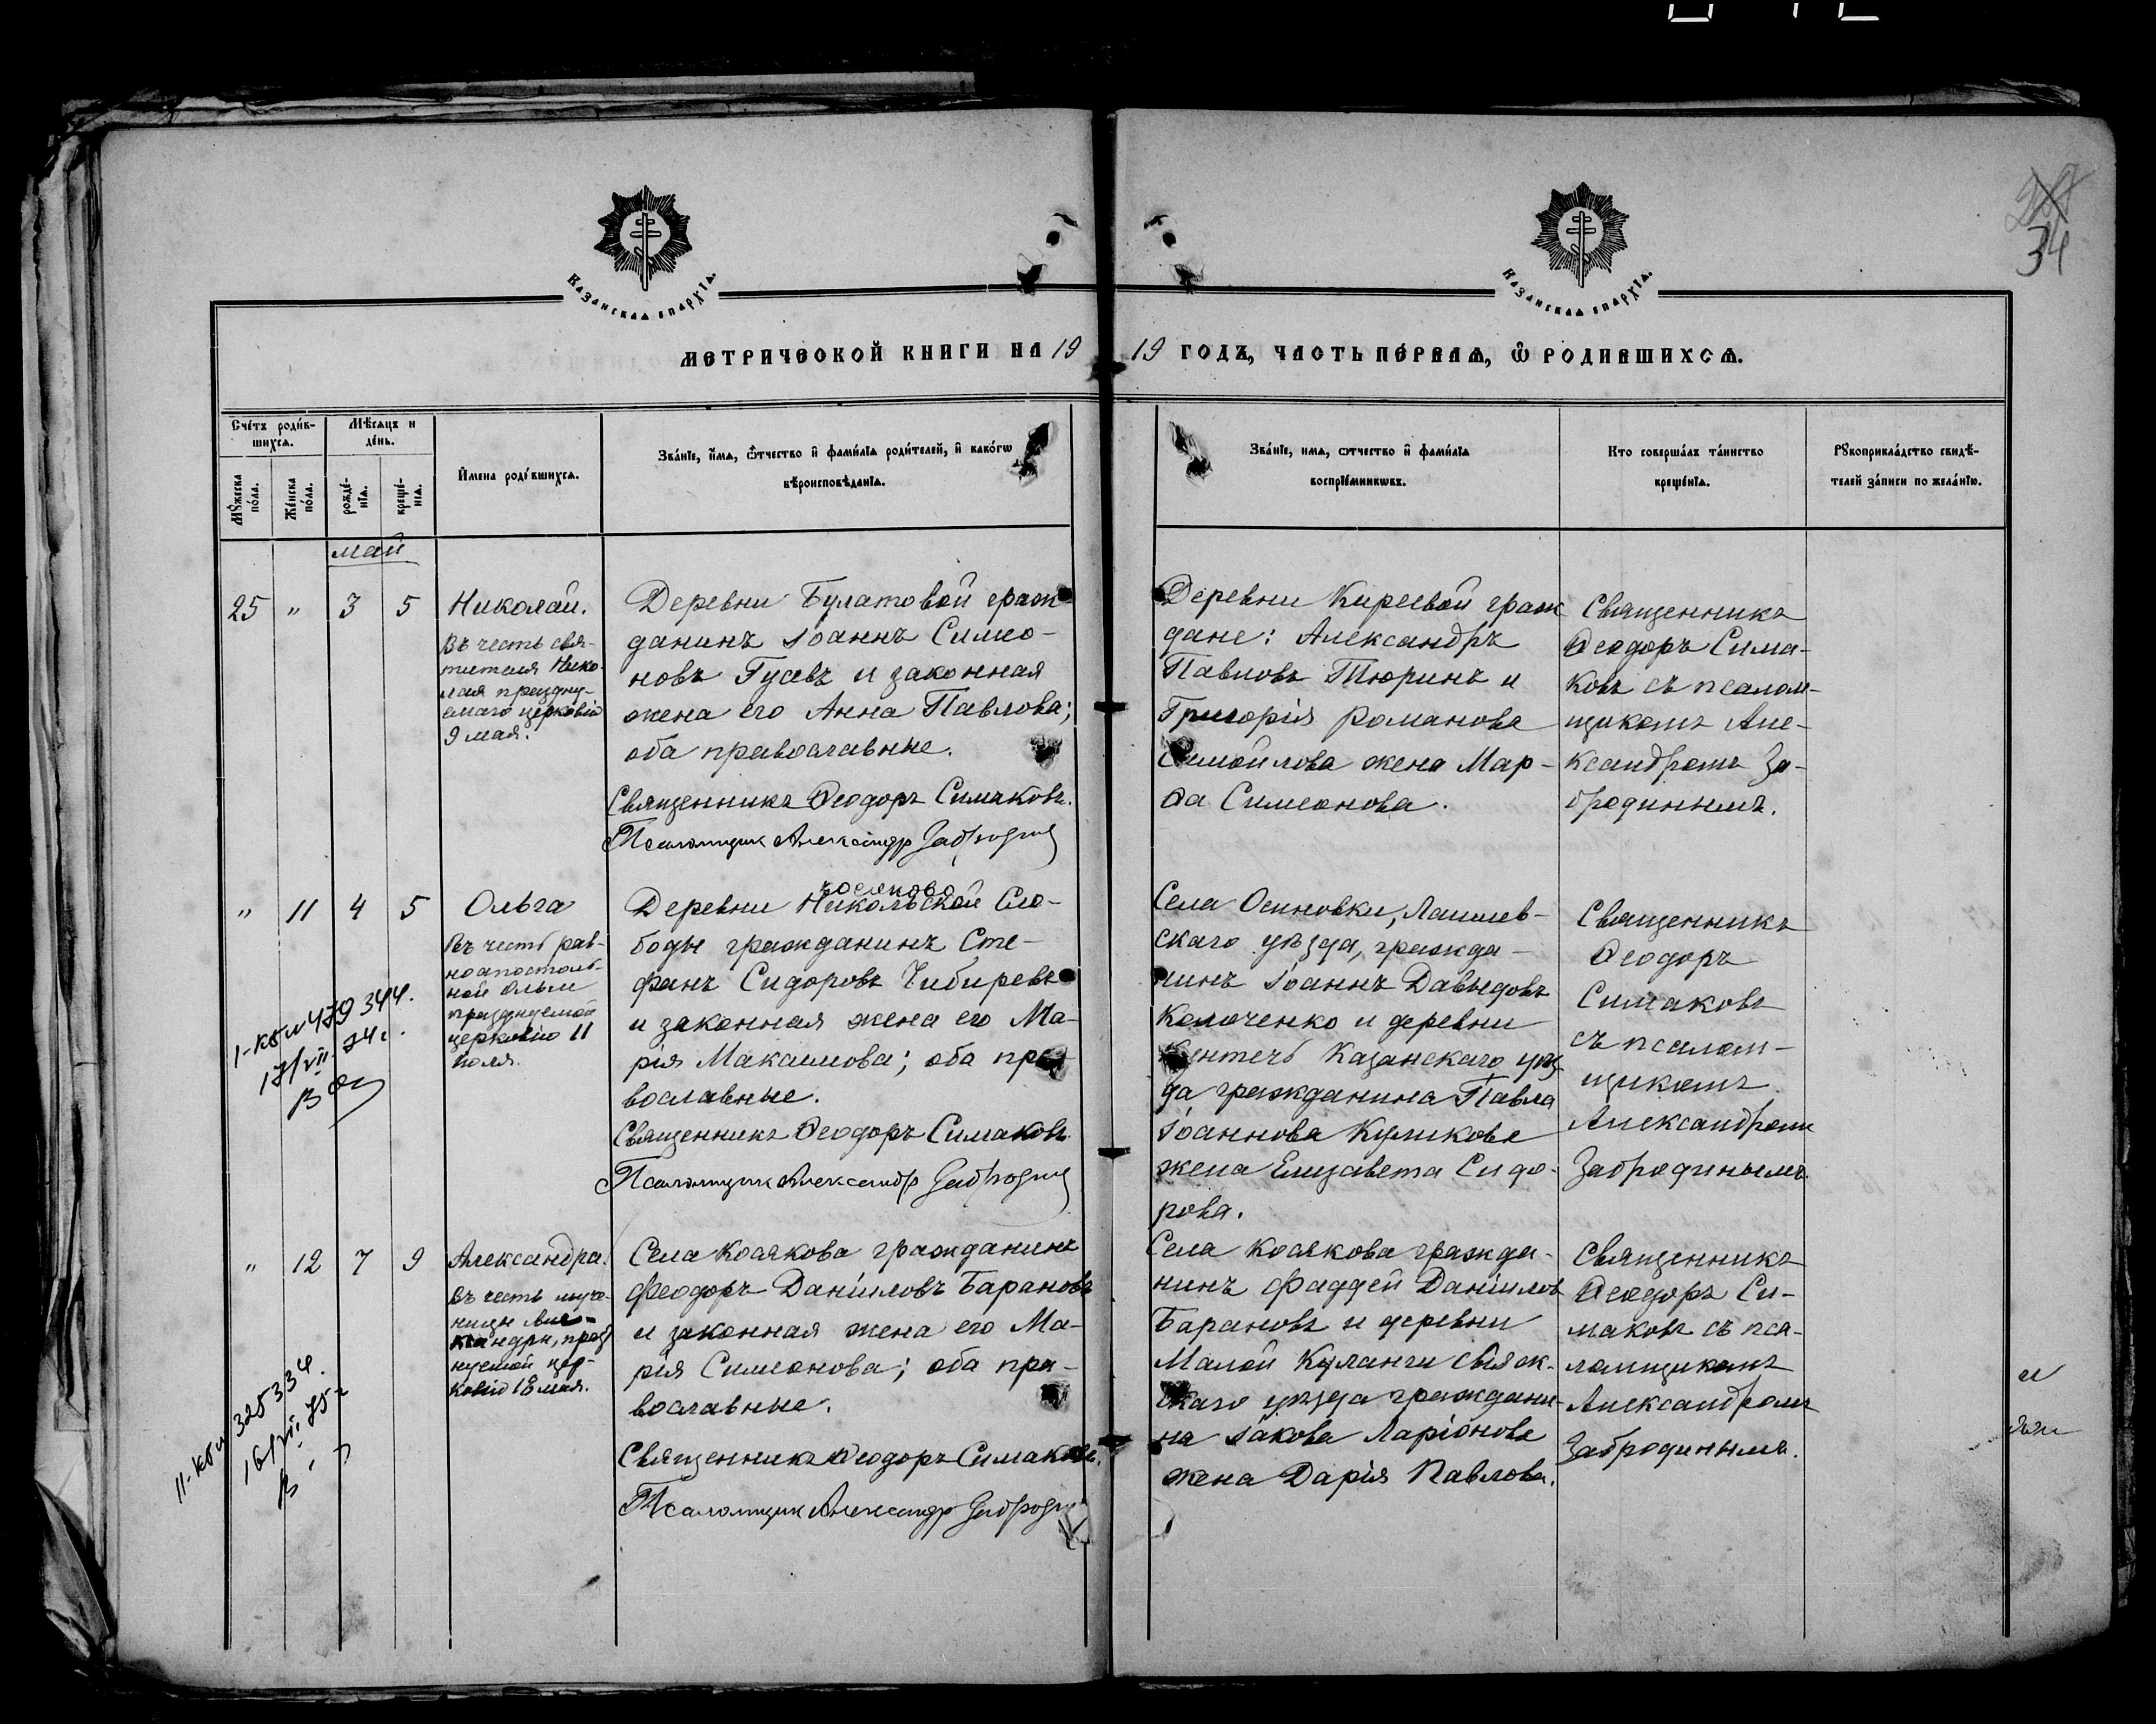 34
Казанская епархїа.
Казанская епархїа.
МЕТРИЧЕСКОЙ КНИГИ НА 19 19 ГОДЪ, ЧАСТЬ ПЕРВАЯ, Ѿ РОДИВШИХСЯ.
Счетъ родив-
шихся.
Мѣсяцъ и
день.
Мужеска
пола.
Женска
пола.
рожде-
нїя.
креще-
нїя.
Имена родившихся.
Званїе, имя, ѿтчество и фамилїа родителей, и какогѡ
вѣроисповѣданїя.
Званїе, имя, ѿтчество и фамилїа
воспрїемниковъ.
Кто совершалъ таинство
крещенїя.
Рукоприкладство свидѣ-
телей записи по желанїю.
май
25 " 3 5
Николай.
Въ честь свя-
тителя Нико-
лая праздну-
емаго церковію
9 мая.
Деревни Булатовой граж-
данинъ Іоаннъ Симео-
новъ Гусевъ и законная
жена его Анна Павлова;
оба православные.
Священникъ Ѳеодоръ Симаковъ.
Псаломщик Александр Забродин
Деревни Киреевой граж
дане: Александръ
Павловъ Тюринъ и
Григорія Романова
Самойлова жена Мар-
ѳа Симеонова.
Священникъ
Ѳеодоръ Сима-
ковъ съ псалом-
щикомъ Але-
ксандромъ За-
бродинымъ.
" 11 4 5
Ольга
Въ честь рав-
ноапостоль-
ной Ольги
празднуемой
церковію 11
іюля.
479344.
17/VII 74 г.
Косяково
Деревни Никольской Сло-
боды гражданинъ Сте-
фанъ Сидоровъ Чибиревъ
и законная жена его Ма-
рія Макашова; оба пра-
вославные.
Священникъ Ѳеодоръ Симаковъ
Псаломщик Александр Забродин
Села Осиновки, Лаишев-
скаго уѣзда, гражда-
нинъ Іоаннъ Давыдовъ
Колоченко и деревни
Казанскаго уѣз-
да гражданина Павла
Іоаннова Куликова
жена Елизавета Сидо-
рова.
Священникъ
Ѳеодоръ
Симаковъ
съ псалом-
щикомъ
Александромъ
Забродинымъ.
" 12 7 9
Александра.
Въ честь муче-
ницы Алек-
сандры, празд
нуемой цер-
ковію 18 мая.
325334.
16/VII 75 г
Села Косякова гражданинъ
Феодоръ Даніиловъ Барановъ
и законная жена его Ма-
рія Симеонова; оба пра-
вославные.
Священникъ Ѳеодоръ Симаковъ.
Псаломщик Александр Забродин
Села Косякова гражда-
нинъ Фаддей Даніиловъ
Барановъ и деревни
Малой Куланги Свіяж-
скаго уѣзда граждани-
на Іакова Ларіонова
жена Дарія Павлова.
Священникъ
Ѳеодоръ Си-
маковъ съ пса-
ломщикомъ
Александромъ
Забродинымъ.